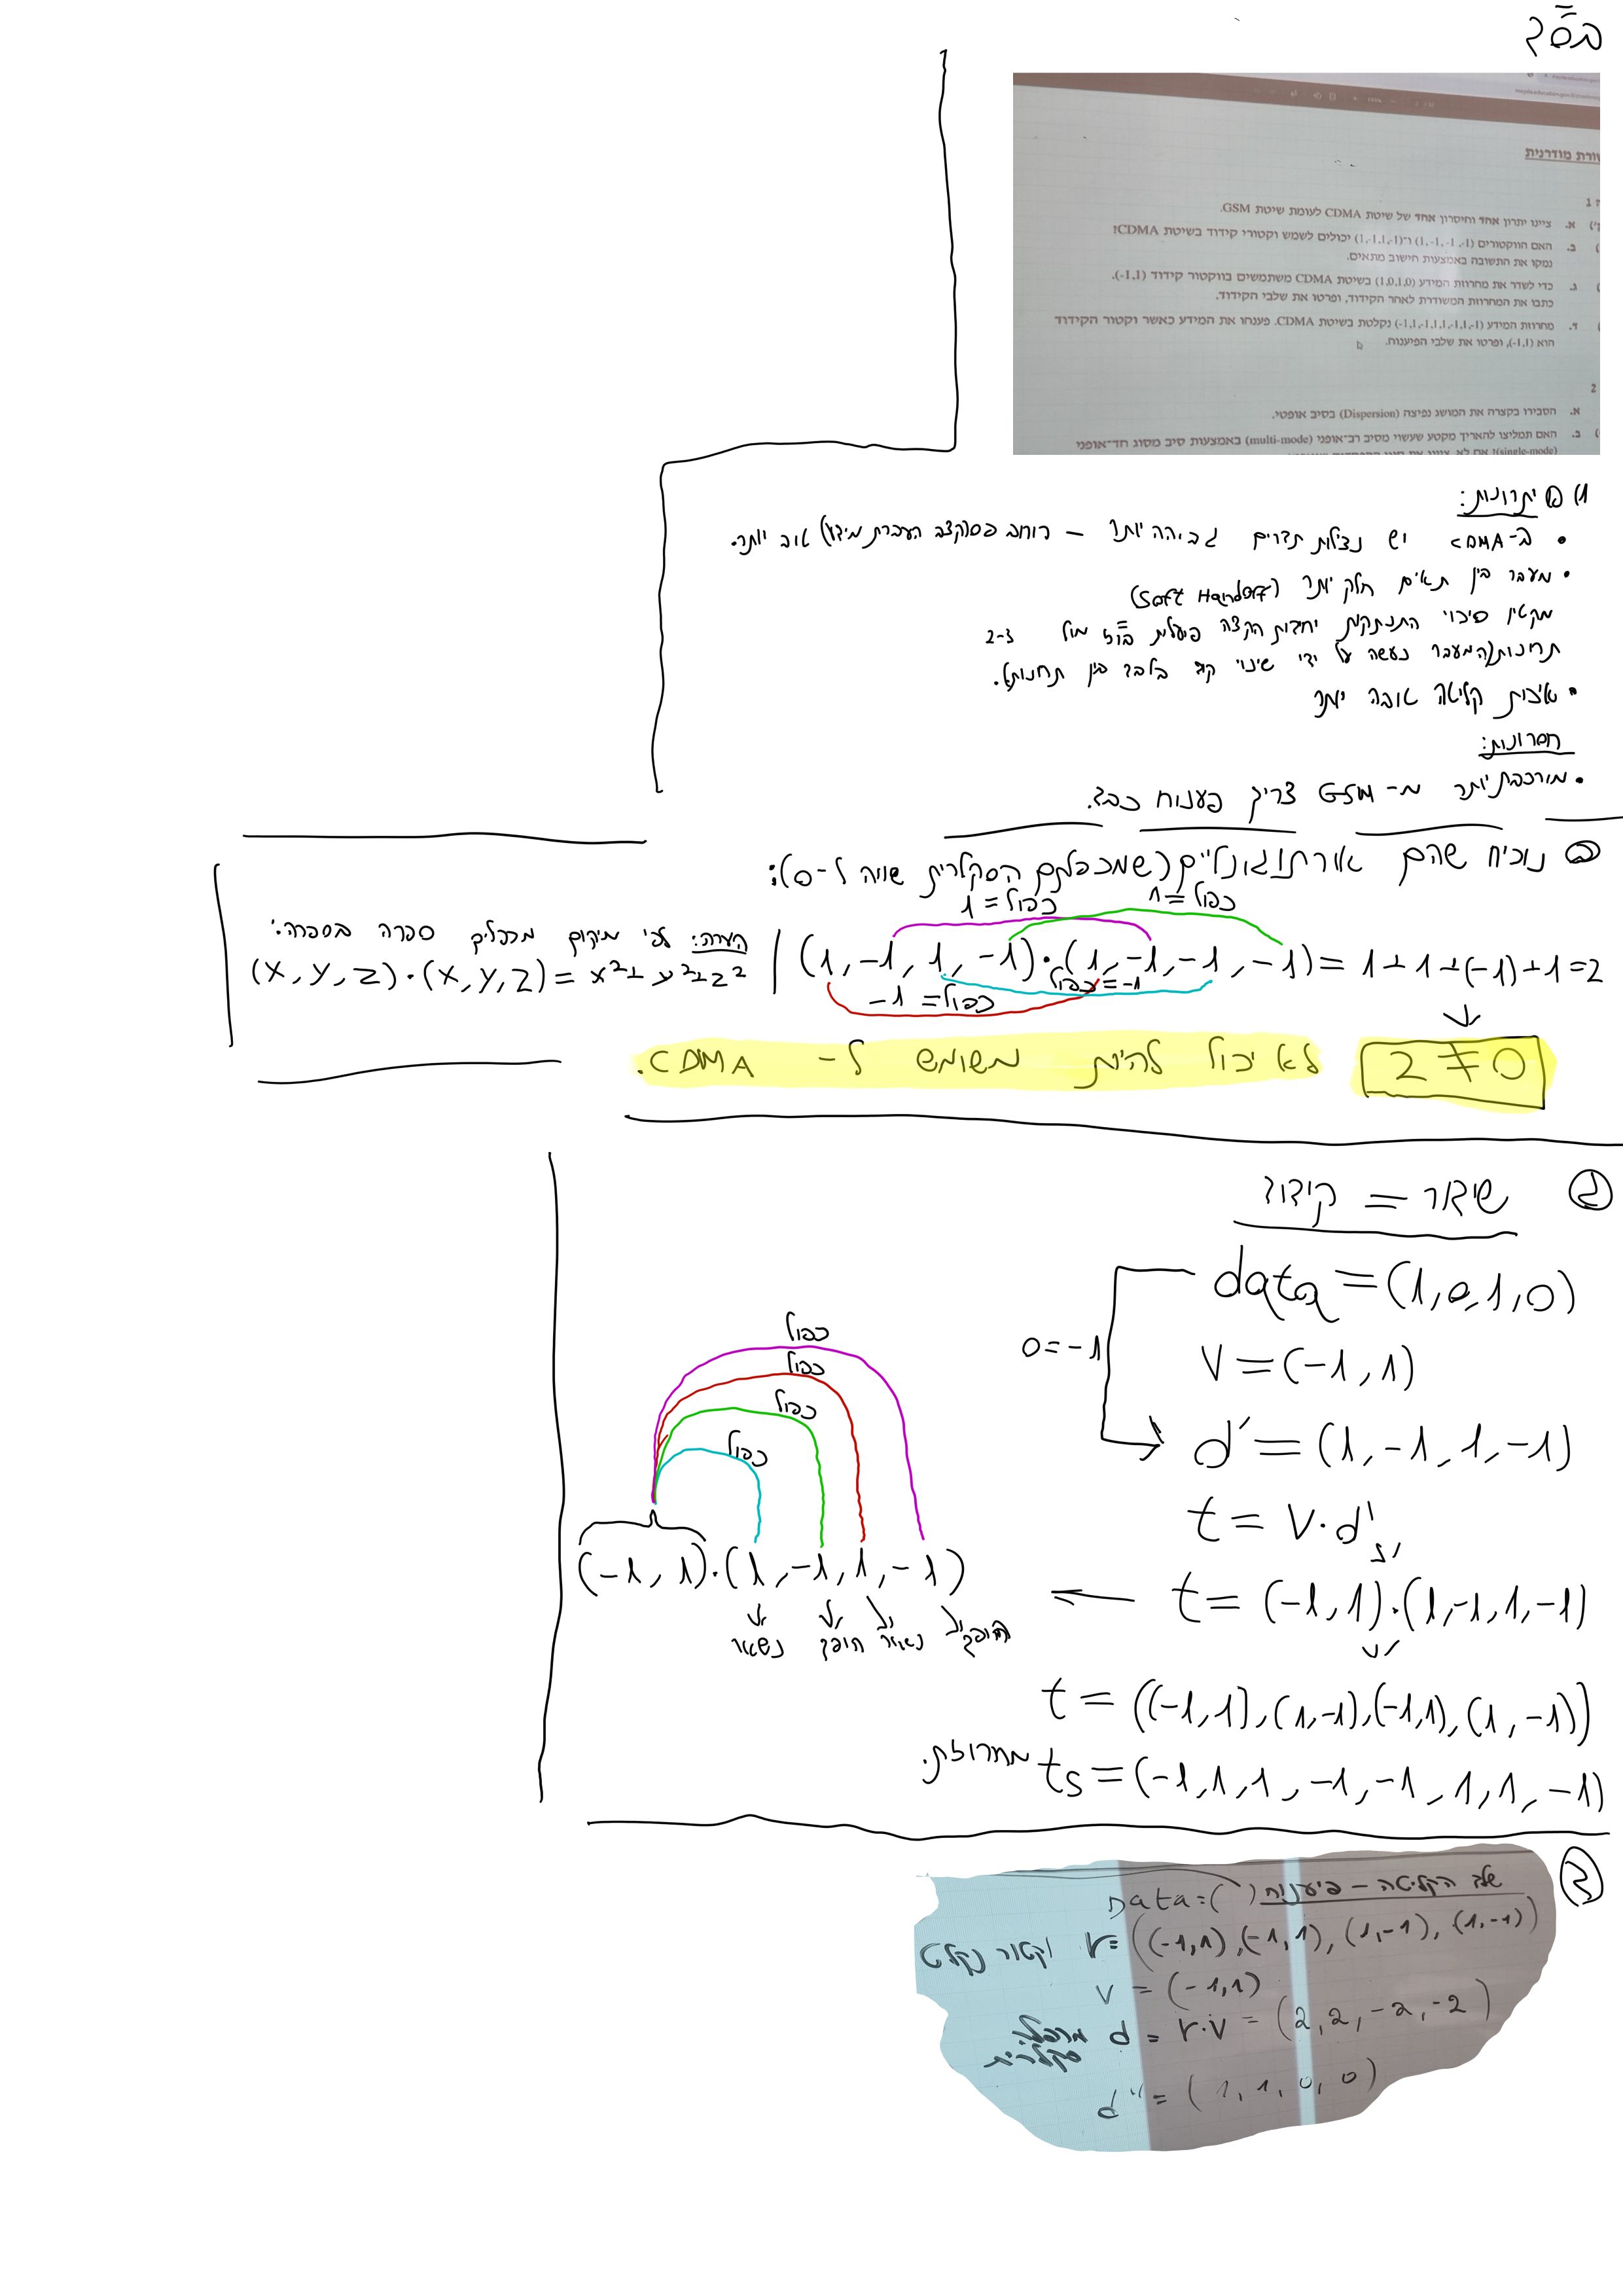 בס״ד
ורת מודרנית
א. ציינו יתרון אחד וחיסרון אחד של שיטת CDMA לעומת שיטת GSM.
ב. האם הווקטורים (1,-1,-1,-1) ו־(1,-1,1,-1) יכולים לשמש וקטורי קידוד בשיטת CDMA?
נמקו את התשובה באמצעות חישוב מתאים.
ג. כדי לשדר את מחרוזת המידע (1,0,1,0) בשיטת CDMA משתמשים בווקטור קידוד (-1,1).
כתבו את המחרוזת המשודרת לאחר הקידוד, ופרטו את שלבי הקידוד.
ד. מחרוזת המידע (-1,1,-1,1,1,-1,1,-1) נקלטת בשיטת CDMA. פענחו את המידע כאשר וקטור הקידוד
הוא (-1,1), ופרטו את שלבי הפיענוח.
2
א. הסבירו בקצרה את המושג נפיצה (Dispersion) בסיב אופטי.
ב. האם תמליצו להאריך מקטע שעשוי מסיב רב־אופני (multi-mode) באמצעות סיב מסוג חד־אופני
(single-mode)? אם לא, ציינו את
1) א יתרונות:
• ב-CDMA יש נצילות תדרים גבוהה יותר – רוחב פס/קצב העברת מידע) טוב יותר.
• מעבר בין תאים חלק יותר (Soft Handoff)
מקטין סיכוי התנתקות יחידת הקצה פועלת בו״ז מול 2-3
תחנות/המעבר נעשה על ידי שינוי קוד בלבד בין תחנות).
• איכות קליטה טובה יותר
חסרונות:
• מורכבת יותר מ-GSM צריך פענוח כבד.
ב נוכיח שהם אורתוגונליים (שמכפלתם הסקלרית שווה ל-0):
כפול = 1
כפול = 1
(1,-1,1,-1)·(1,-1,-1,-1) = 1+1+(-1)+1=2
כפול = -1
כפול = -1
הערה: לפי מיקום מכפלים ספרה בספרה:
(X,Y,Z)·(X,Y,Z) = x²+y²+z²
2≠0 לא יכול להיות משומש ל- CDMA.
ג שידור = קידוד
data=(1,0,1,0)
0=-1
V=(-1,1)
d'=(1,-1,1,-1)
t=V·d'
t=(-1,1)·(1,-1,1,-1)
כפול
כפול
כפול
כפול
(-1,1)·(1,-1,1,-1)
נשאר הופך נשאר הופך
t=((-1,1),(1,-1),(-1,1),(1,-1))
ts=(-1,1,1,-1,-1,1,1,-1) מחרוזת.
ד
שלב הקליטה – פיענוח Data=( )
r=((-1,1),(-1,1),(1,-1),(1,-1)) וקטור נקלט
v=(-1,1)
d=r·v=(2,2,-2,-2) מכפלה
סקלרית
d''=(1,1,0,0)